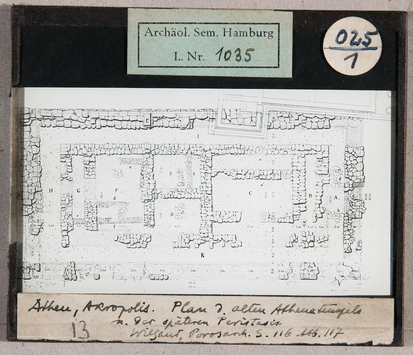 Archäol. Sem. Hamburg
L. Nr. 1035
025
1
Athen, Akropolis. Plan d. alten Athenatempels
m. der späteren Peristasis
Wiegand, Porosarch. S. 116 Abb. 117
13